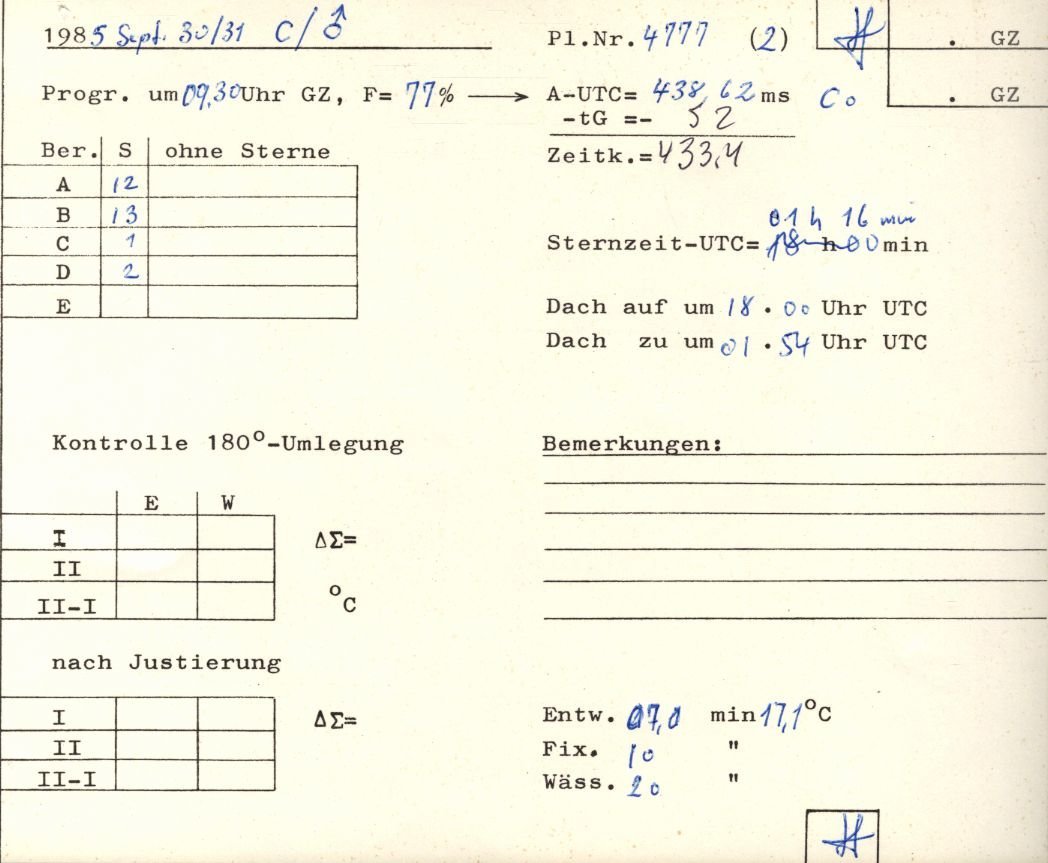 1985 Sept. 30/31 C/♂ Pl.Nr. 4777 (2) . GZ
Progr. um 09,30 Uhr GZ, F= 77% → A-UTC= 438,62 ms Co . GZ
-tG =- 52
Zeitk.= 433,4
Ber. S ohne Sterne
A 12
B 13
C 1
D 2
E
01 h 16 min
Sternzeit-UTC= 18 h 00 min
Dach auf um 18 . 00 Uhr UTC
Dach zu um 01 . 54 Uhr UTC
Kontrolle 180°-Umlegung
E W
I ΔΣ=
II
II-I °C
nach Justierung
I ΔΣ=
II
II-I
Bemerkungen:
Entw. 07,0 min 17,1°C
Fix. 10 "
Wäss. 20 "